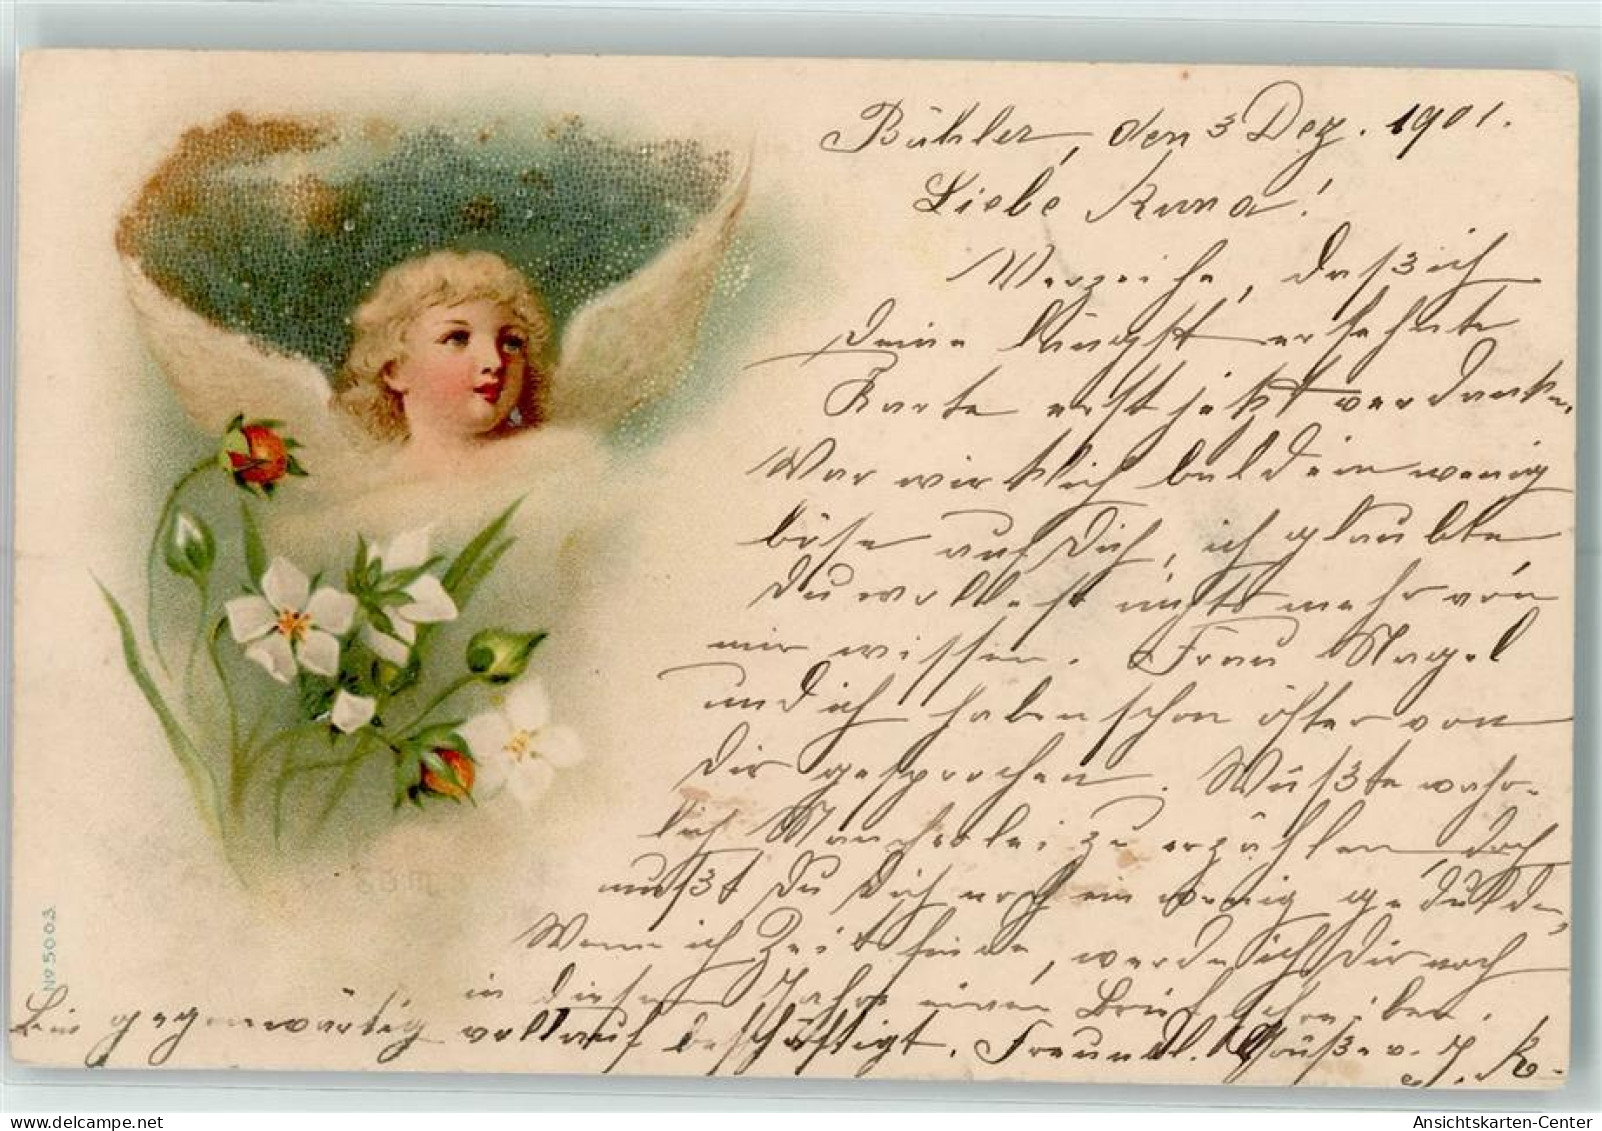 Bühler, den 3 Dez. 1901.
Liebe Runa!
Verzeihe, daß ich
Deine längst ersehnte
Karte erst jetzt verdanke.
War wirklich bald ein wenig
böse auf Dich, ich glaubte
Du wollest nichts mehr von
mir wissen. Frau Nagel
und ich haben schon öfter von
Dir gesprochen. Wüßte wahr-
lich Mancherlei zu erzählen, doch
mußt Du Dich noch ein wenig gedulden,
Wenn ich Zeit finde, werde ich Dir noch
in diesem Jahr einen Brief schreiben.
Bin gegenwärtig vollauf beschäftigt. Freundl. Grüße v. J. K.
No 50003
Ansichtskarten-Center